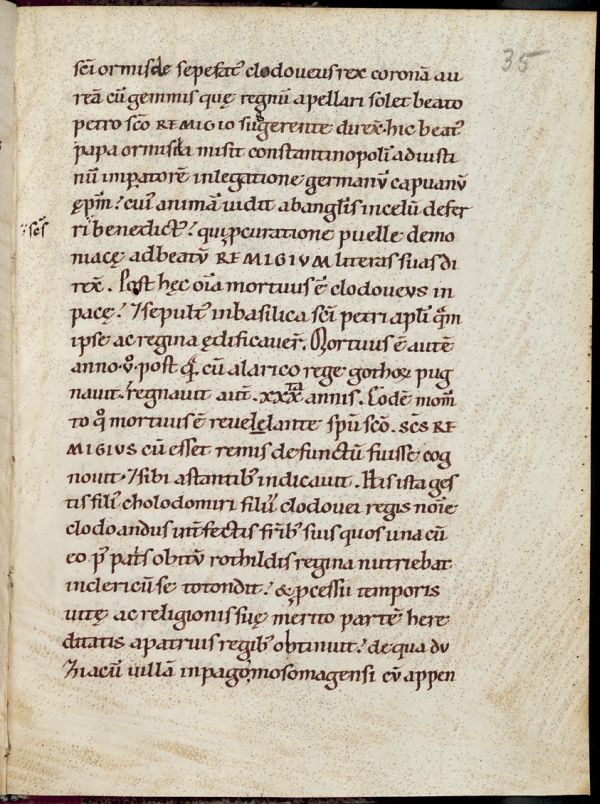 35
sc̄i ormisde sepefat᷒ clodoveus rex coronā au
reā cū gemmis quę regnū apellari solet beato
petro sc̄o REMIGIO suggerente direx̄. hic beat᷒
papa ormisda misit constantinopolī ad iusti
nū imꝑatorē in legatione germanū capuanū
ęp̄m. cui᷒ animā vidit ab angl̄is in celū defer
⁊ sc̄s
ri benedict᷒. qui ꝓcuratione puelle demo
niacę ad beatū REMIGIUM literas suas di
rex̄. Post hęc oīa mortuus ē clodoveus in
pacę. ⁊ sepult᷒ in basilica sc̄i petri apl̄i quā
ipse ac regina ędificaver̄. Mortuus ē autē
anno .v. post quā cū alarico rege gothoꝝ pug
navit. regnavit aut̄. xxx annis. Eodē mom̄
to quo mortuus ē revelelante spū sc̄o. SC̄S RE
MIGIUS cū esset remis defunctū fuisse cog
novit. ⁊ sibi astantib᷒ indicavit. His ista ges
tis fili᷒ chlodomiri filii clodovei regis noīe
clodoandus int̄fectis fr̄ib᷒ suis quos una cū
eo p᷒ pat̄s obitū rothildis regina nutriebat
in clericū se totondit. & ꝓcessu temporis
vitę ac religionis suę merito partē here
ditatis a patruis regib᷒ obtinuit. de qua du
ziacū villā in pago mosomagensi cū appen